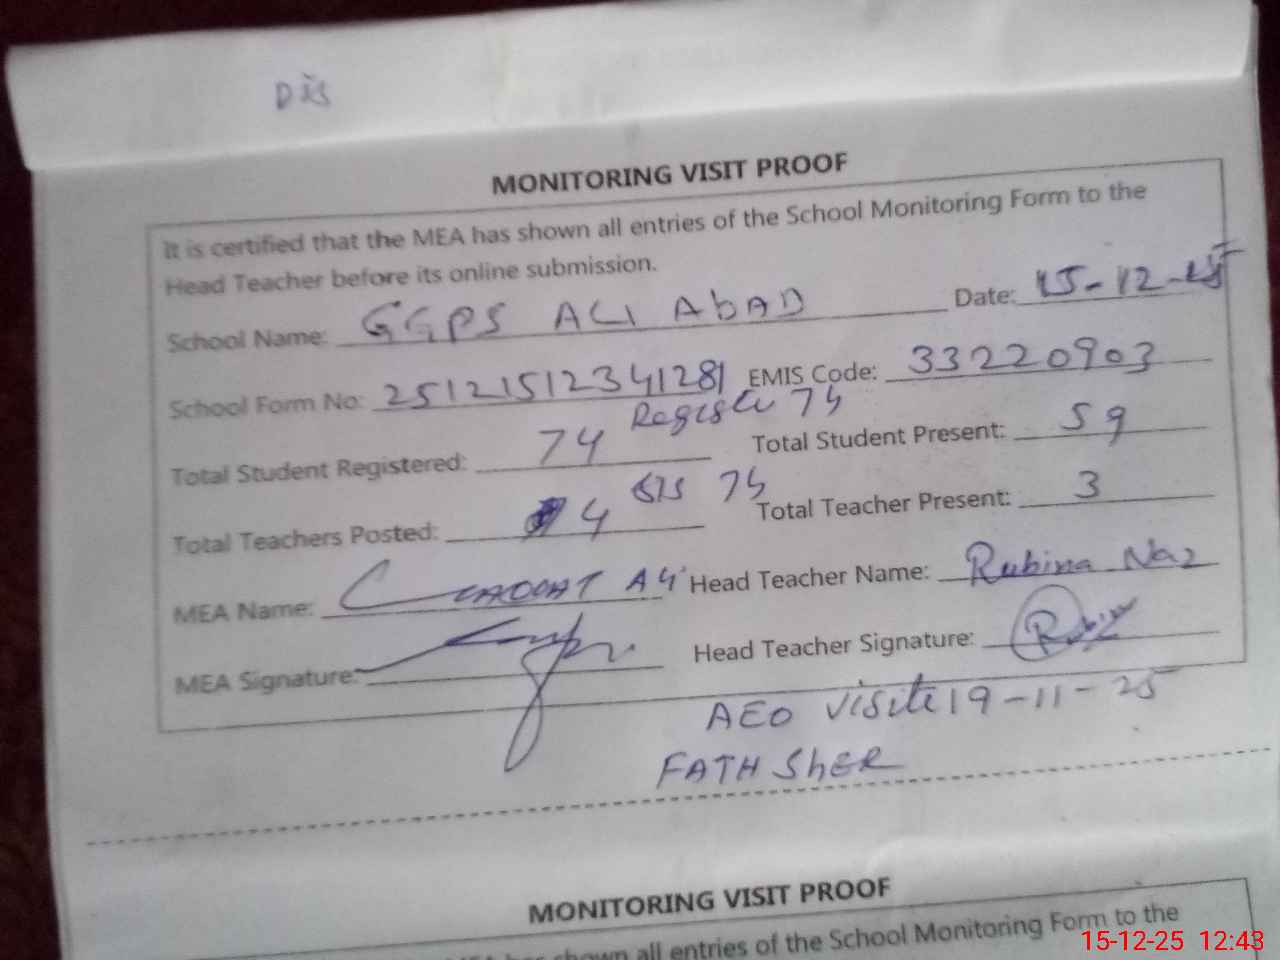 Dis
MONITORING VISIT PROOF
It is certified that the MEA has shown all entries of the School Monitoring Form to the
Head Teacher before its online submission.
School Name: GGPS ALI AbAD Date: 15-12-25
School Form No: 25121512341281 EMIS Code: 33220903
Register 74
Total Student Registered: 74 Total Student Present: 59
SIS 74
Total Teachers Posted: 4 Total Teacher Present: 3
MEA Name: Head Teacher Name: Rubina Naz
MEA Signature: Head Teacher Signature:
AEO visite 19-11-25
FATH ShER
MONITORING VISIT PROOF
shown all entries of the School Monitoring Form to the
15-12-25 12:43